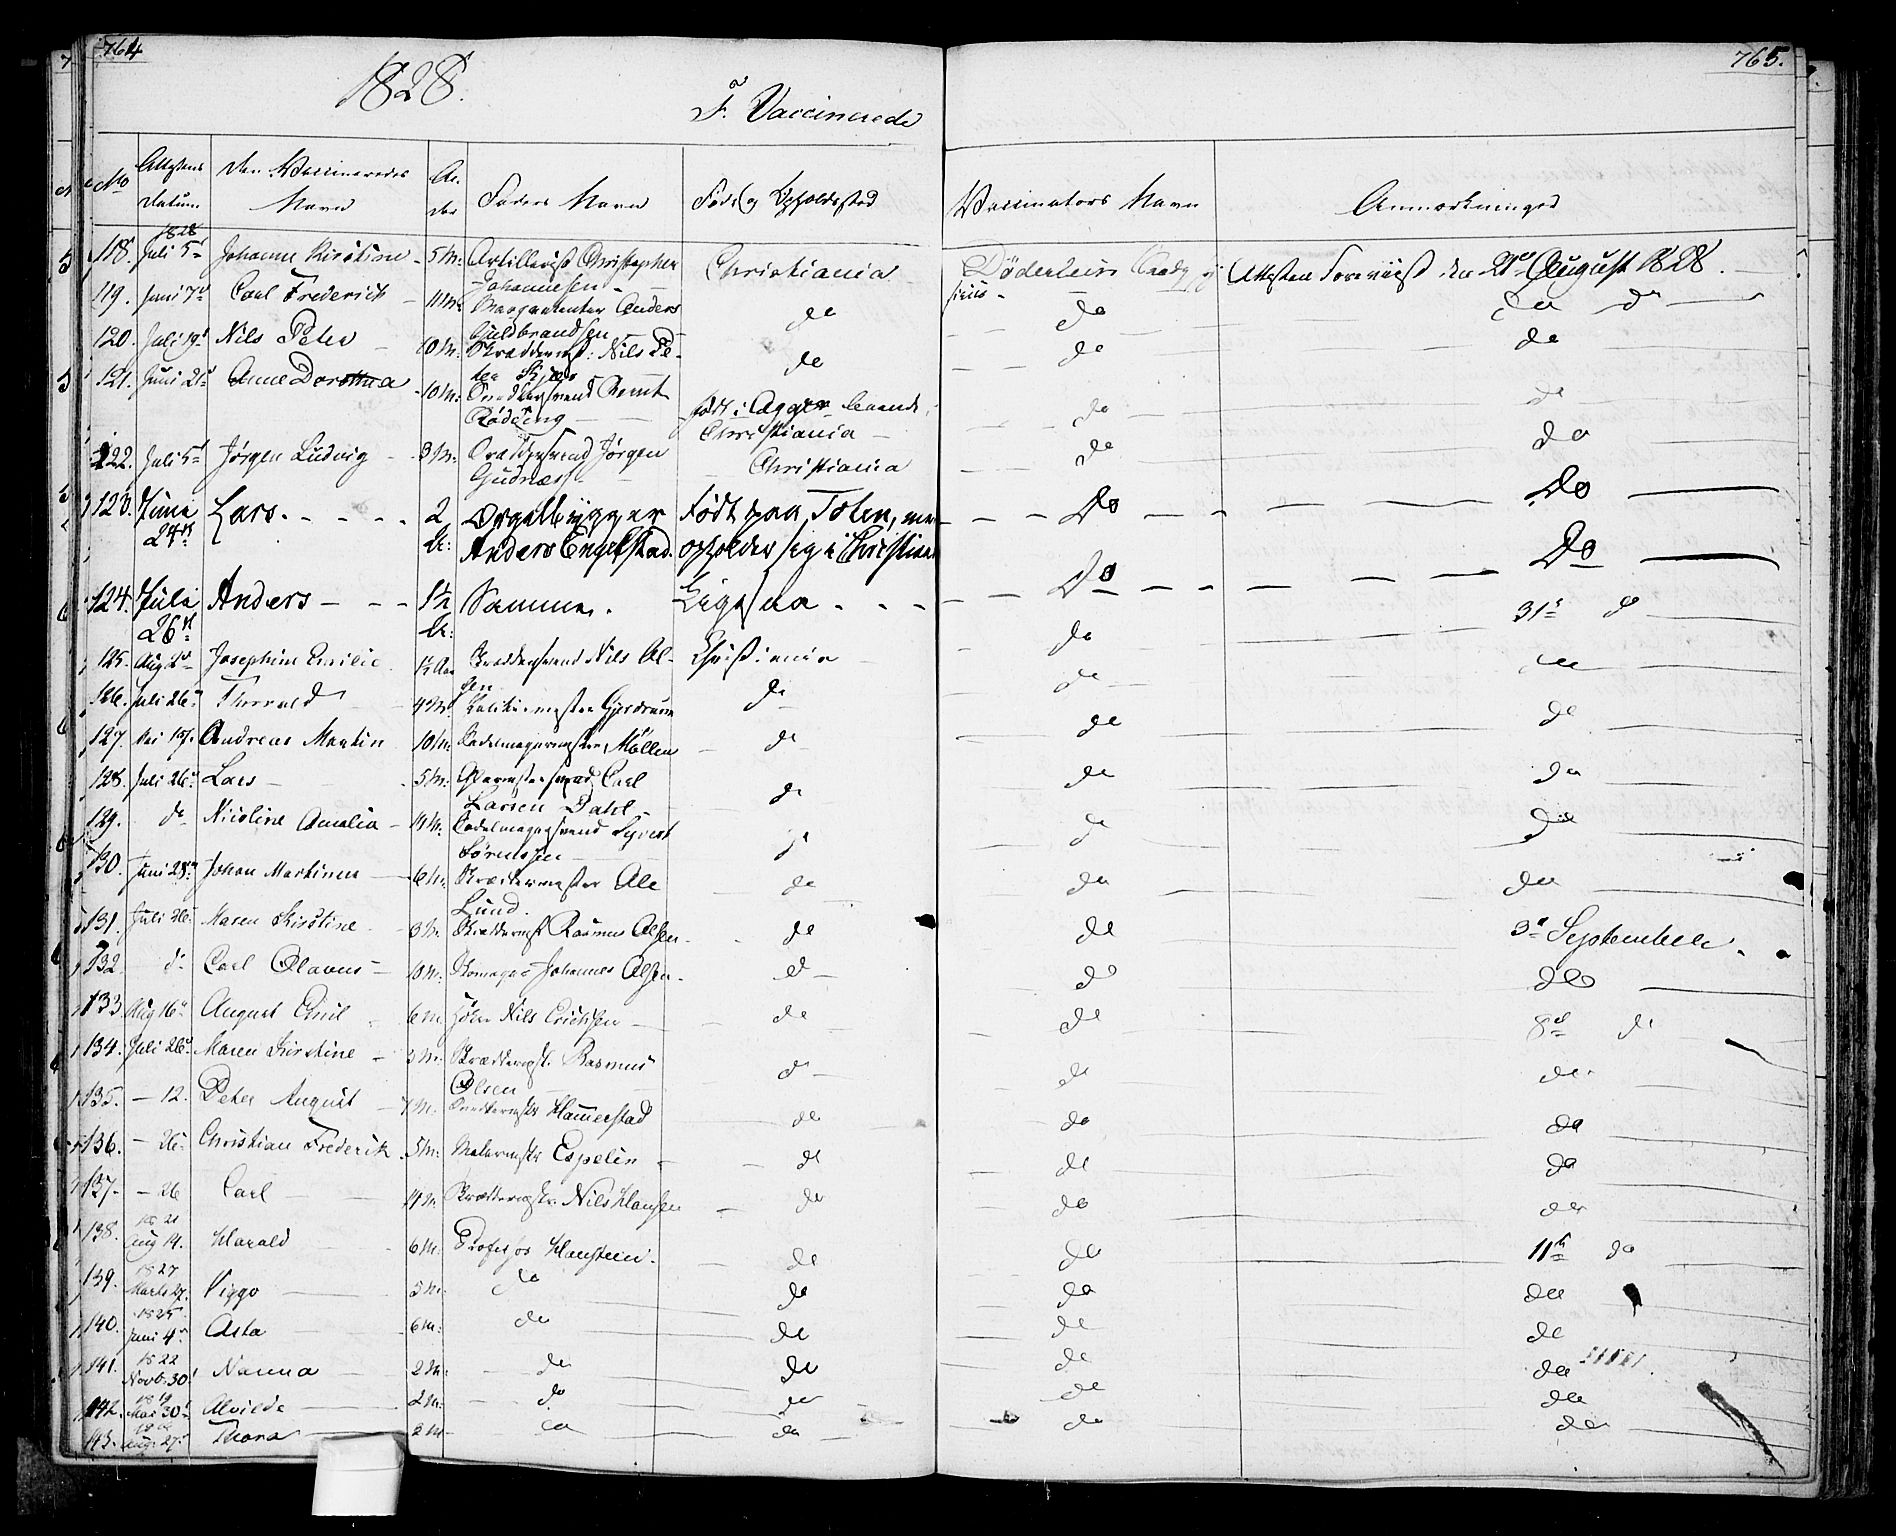 764
1828.
F. Vaccinerede
765.
No
Attestens Datum
Den Vaccineredes Navn
Al-der
Faders Navn
Føde og Opholdssted
Vaccinators Navn
Anmærkninger
118. 1828 Juli 5d Johanne Kirstine 5 M. Artillerist Christopher Johannesen Christiania Attesten Foreviist den 21de August 1828.
119. Juni 7d Carl Frederich 11 M. Anders Guldbrandsen do do do do
120. Juli 19d Nils Peter 10 M. Skræddermst: Nils Pe- do do do
121. Juni 21d Anne Dorothea 10 M. Rødding født i Agger boende i Christiania do do
122. Juli 5d Jørgen Ludvig 3 M. Jørgen Christiania do do
123. Junii 24de Lars. 2 A: Orgelbygger Anders Engelstad. Født paa Toten, men opholder sig i Christiania Do Do
124. Julii 26de Anders 1½ A: Samme. Ligesaa Do Do
125. Aug 2d Josephine Emilie 1½ Aar Nils Ol-sen Christiania do 31te do
126. Juli 26d Thorvald 4 M. Politiemester Gjerdrum do do do
127. Mai 17. Andreas Martin 10 M. Sadelmagermester Møller do do do
128. Juli 26d Lars 5 M. Glarmestersvend Carl Larsen Dahl do do do
129. do Nicoline Amalia 11 M. Sadelmagersvend Syvert Sørensen do do do
130. Juni 28d Johan Martinus 6 M. Skræddermester Ole Lund. do do do
131. Juli 26d Maren Kirstine 3 M. Skræddermst Rasmus Olsen do do 3d September
132 do Carl Olavus 10 M. Skomager Johannes Olsen do do do
133. Aug 16d August Emil 6 M Nils Erichsen do do 8d do
134. Juli 26d Maren Kirstine 3 M. Skræddermst. Rasmus Olsen do do do
135. — 12. Peter August 7 M. Hammerstad do do do
136. — 26. Christian Frederik 5 M. Malermstr Espelin do do do
137. — 26 Carl 11 M. Skræddermstr. Nils Hansen do do do
138. Aug 14. Harald 6 M. Professor Hansteen. do do 11te do
139. 1827 Marts 27. Viggo 5 M. do do do do
140. 1825 Juni 4d Asta 6 M. do do do do
141. 1822 Novb. 30d Nanna 2 M. do do do do
142. 1819 Mai 30d Alvilde 2 M. do do do do
143. Aug 27d Thora 2 M do do do do